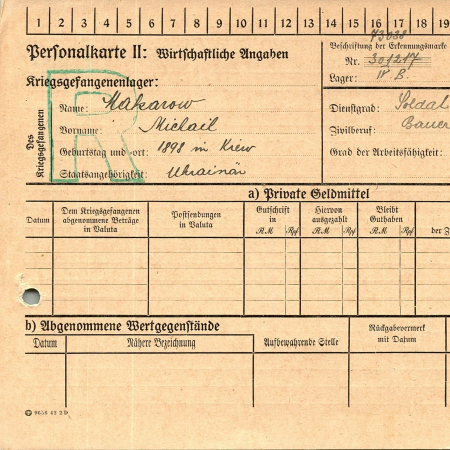 1 2 3 4 5 6 7 8 9 10 11 12 13 14 15 16 17 18 19
Personalkarte II: Wirtschaftliche Angaben
73038
Beschriftung der Erkennungsmarke
Nr. 301217
Lager: IV B.
Kriegsgefangenenlager:
R
Des Kriegsgefangenen
Name: Makarow
Vorname: Michail
Geburtstag und -ort: 1898 in Kiew
Staatsangehörigkeit: Ukrainär
Dienstgrad: Soldat
Zivilberuf: Bauer
Grad der Arbeitsfähigkeit:
a) Private Geldmittel
Datum
Dem Kriegsgefangenen abgenommene Beträge in Valuta
Postsendungen in Valuta
Gutschrift in
RM Rpf
Hiervon ausgezahlt
RM Rpf
Bleibt Guthaben
RM Rpf
der
b) Abgenommene Wertgegenstände
Datum
Nähere Bezeichnung
Aufbewahrende Stelle
Rückgabevermerk mit Datum
9656 42 2 D